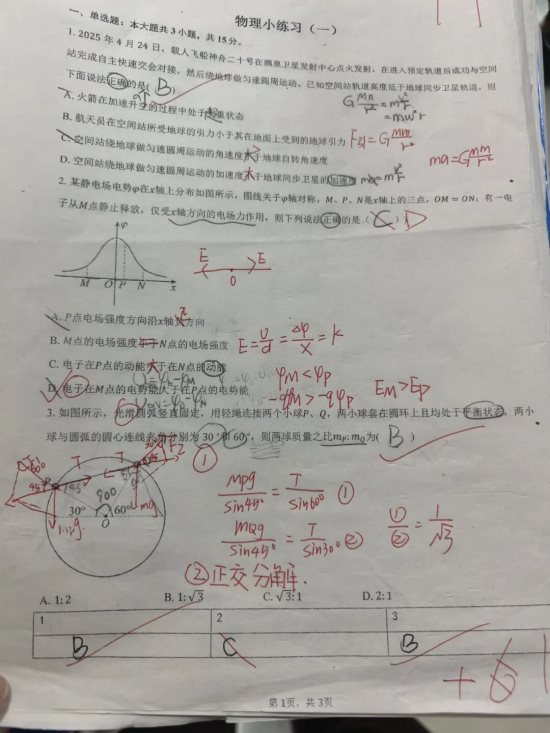 物理小练习（一）
一、单选题：本大题共3小题，共15分。
1. 2025年4月24日，载人飞船神舟二十号在酒泉卫星发射中心点火发射，在进入预定轨道后成功与空间
站完成自主快速交会对接，然后绕地球做匀速圆周运动。已知空间站轨道高度低于地球同步卫星轨道，则
下面说法正确的是( B )
A. 火箭在加速升空的过程中处于超重状态
B. 航天员在空间站所受地球的引力小于其在地面上受到的地球引力
C. 空间站绕地球做匀速圆周运动的角速度于地球自转角速度
D. 空间站绕地球做匀速圆周运动的加速度于地球同步卫星的加速度
2. 某静电场电势φ在x轴上分布如图所示，图线关于φ轴对称，M、P、N是x轴上的三点，OM = ON；有一电
子从M点静止释放，仅受x轴方向的电场力作用，则下列说法正确的是( C ) D
φ
M O P N x
E E
O
A. P点电场强度方向沿x轴方向
B. M点的电场强度N点的电场强度
E = U/d = Δφ/X = K
C. 电子在P点的动能大于在N点的动能
φM < φP
D. 电子在M点的电势能大于在P点的电势能
-qφM > -qφP
EM > EP
3. 如图所示，光滑圆弧竖直固定，用轻绳连接两个小球P、Q，两小球套在圆环上且均处于平衡状态，两小
球与圆弧的圆心连线夹角分别为30°和60°，则两球质量之比mP: mQ为( B )
①
T T
90°
30° O 60°
mPg/sin45° = T/sin60° ①
mQg/sin45° = T/sin30° ②
①/② = 1/√3
②正交分解.
A. 1: 2 B. 1: √3 C. √3: 1 D. 2: 1
1 2 3
B C B
+6
第1页，共3页